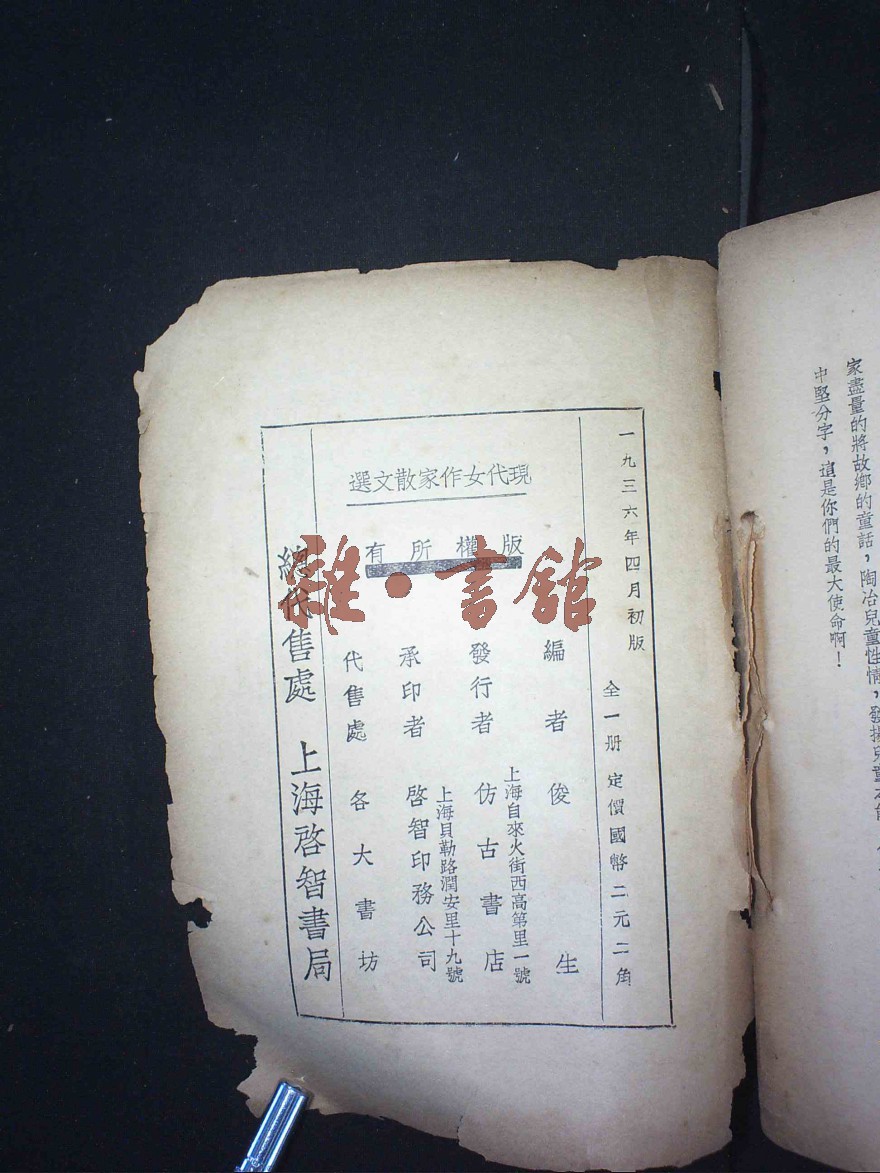 家盡量的將故鄉的童話，陶冶兒童性情，發揚兒童之
中堅分字，這是你們的最大使命啊！
一九三六年四月初版　全一册　定價國幣二元二角
現代女作家散文選
版權所有
編者　俊生
發行者　仿古書店
上海自來火街西高第里一號
承印者　啓智印務公司
上海貝勒路潤安里十九號
代售處　各大書坊
總代售處　上海啓智書局
雜·書館